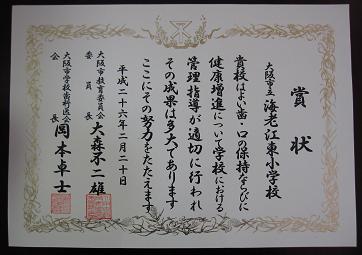 賞状
大阪市立 海老江東小学校
貴校はよい歯・口の保持ならびに
健康増進について学校における
管理指導が適切に行われ
その成果は多大であります
ここにその努力をたたえます
平成二十六年二月二十日
大阪市教育委員会
委員長 大森不二雄
大阪市学校歯科医会
会長 岡本卓士